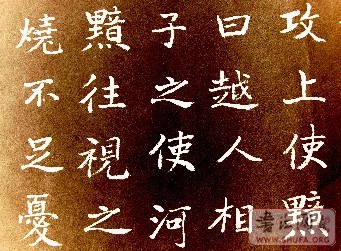 攻上使黯
曰越人相
子之使河
黯往視之
燒不足憂
WWW.SHUFA.ORG